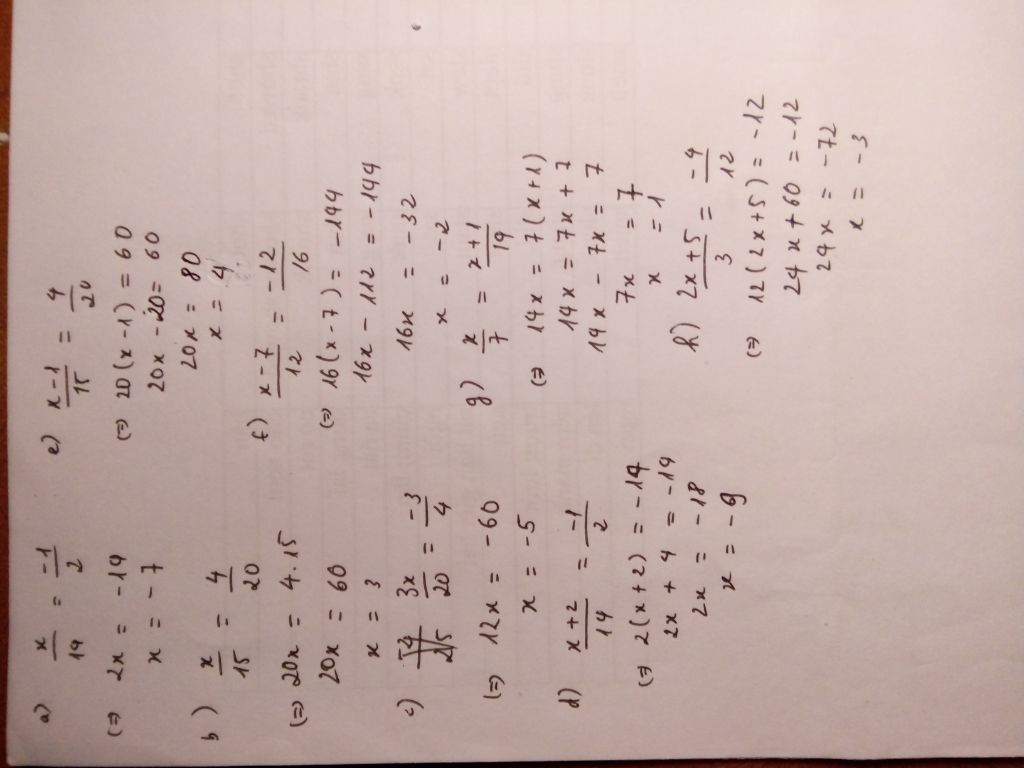 a) x/14 = -1/2
(=) 2x = -14
x = -7
b) x/15 = 4/20
(=) 20x = 4.15
20x = 60
x = 3
c) 3x/20 = -3/4
(=) 12x = -60
x = -5
d) x+2/14 = -1/2
(=) 2(x+2) = -14
2x + 4 = -14
2x = -18
x = -9
e) x-1/15 = 4/20
(=) 20(x-1) = 60
20x - 20 = 60
20x = 80
x = 4
f) x-7/12 = -12/16
(=) 16(x-7) = -144
16x - 112 = -144
16x = -32
x = -2
g) x/7 = x+1/14
(=) 14x = 7(x+1)
14x = 7x + 7
14x - 7x = 7
7x = 7
x = 1
h) 2x+5/3 = -4/12
(=) 12(2x+5) = -12
24x + 60 = -12
24x = -72
x = -3